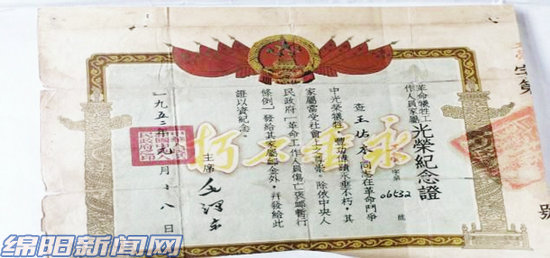 革命犧牲工
作人員家屬
光榮紀念證
字第06532號
查王佑本同志在革命鬥爭
中光榮犧牲,豐功偉績永垂不朽,其
家屬當受社會上之尊崇。除依中央人
民政府「革命工作人員傷亡褒卹暫行
條例」發給其家屬卹金外,并發給此
證以資紀念。
主席 毛澤東
一九五二年九月十八日
永垂不朽
字第
號
绵阳新闻网